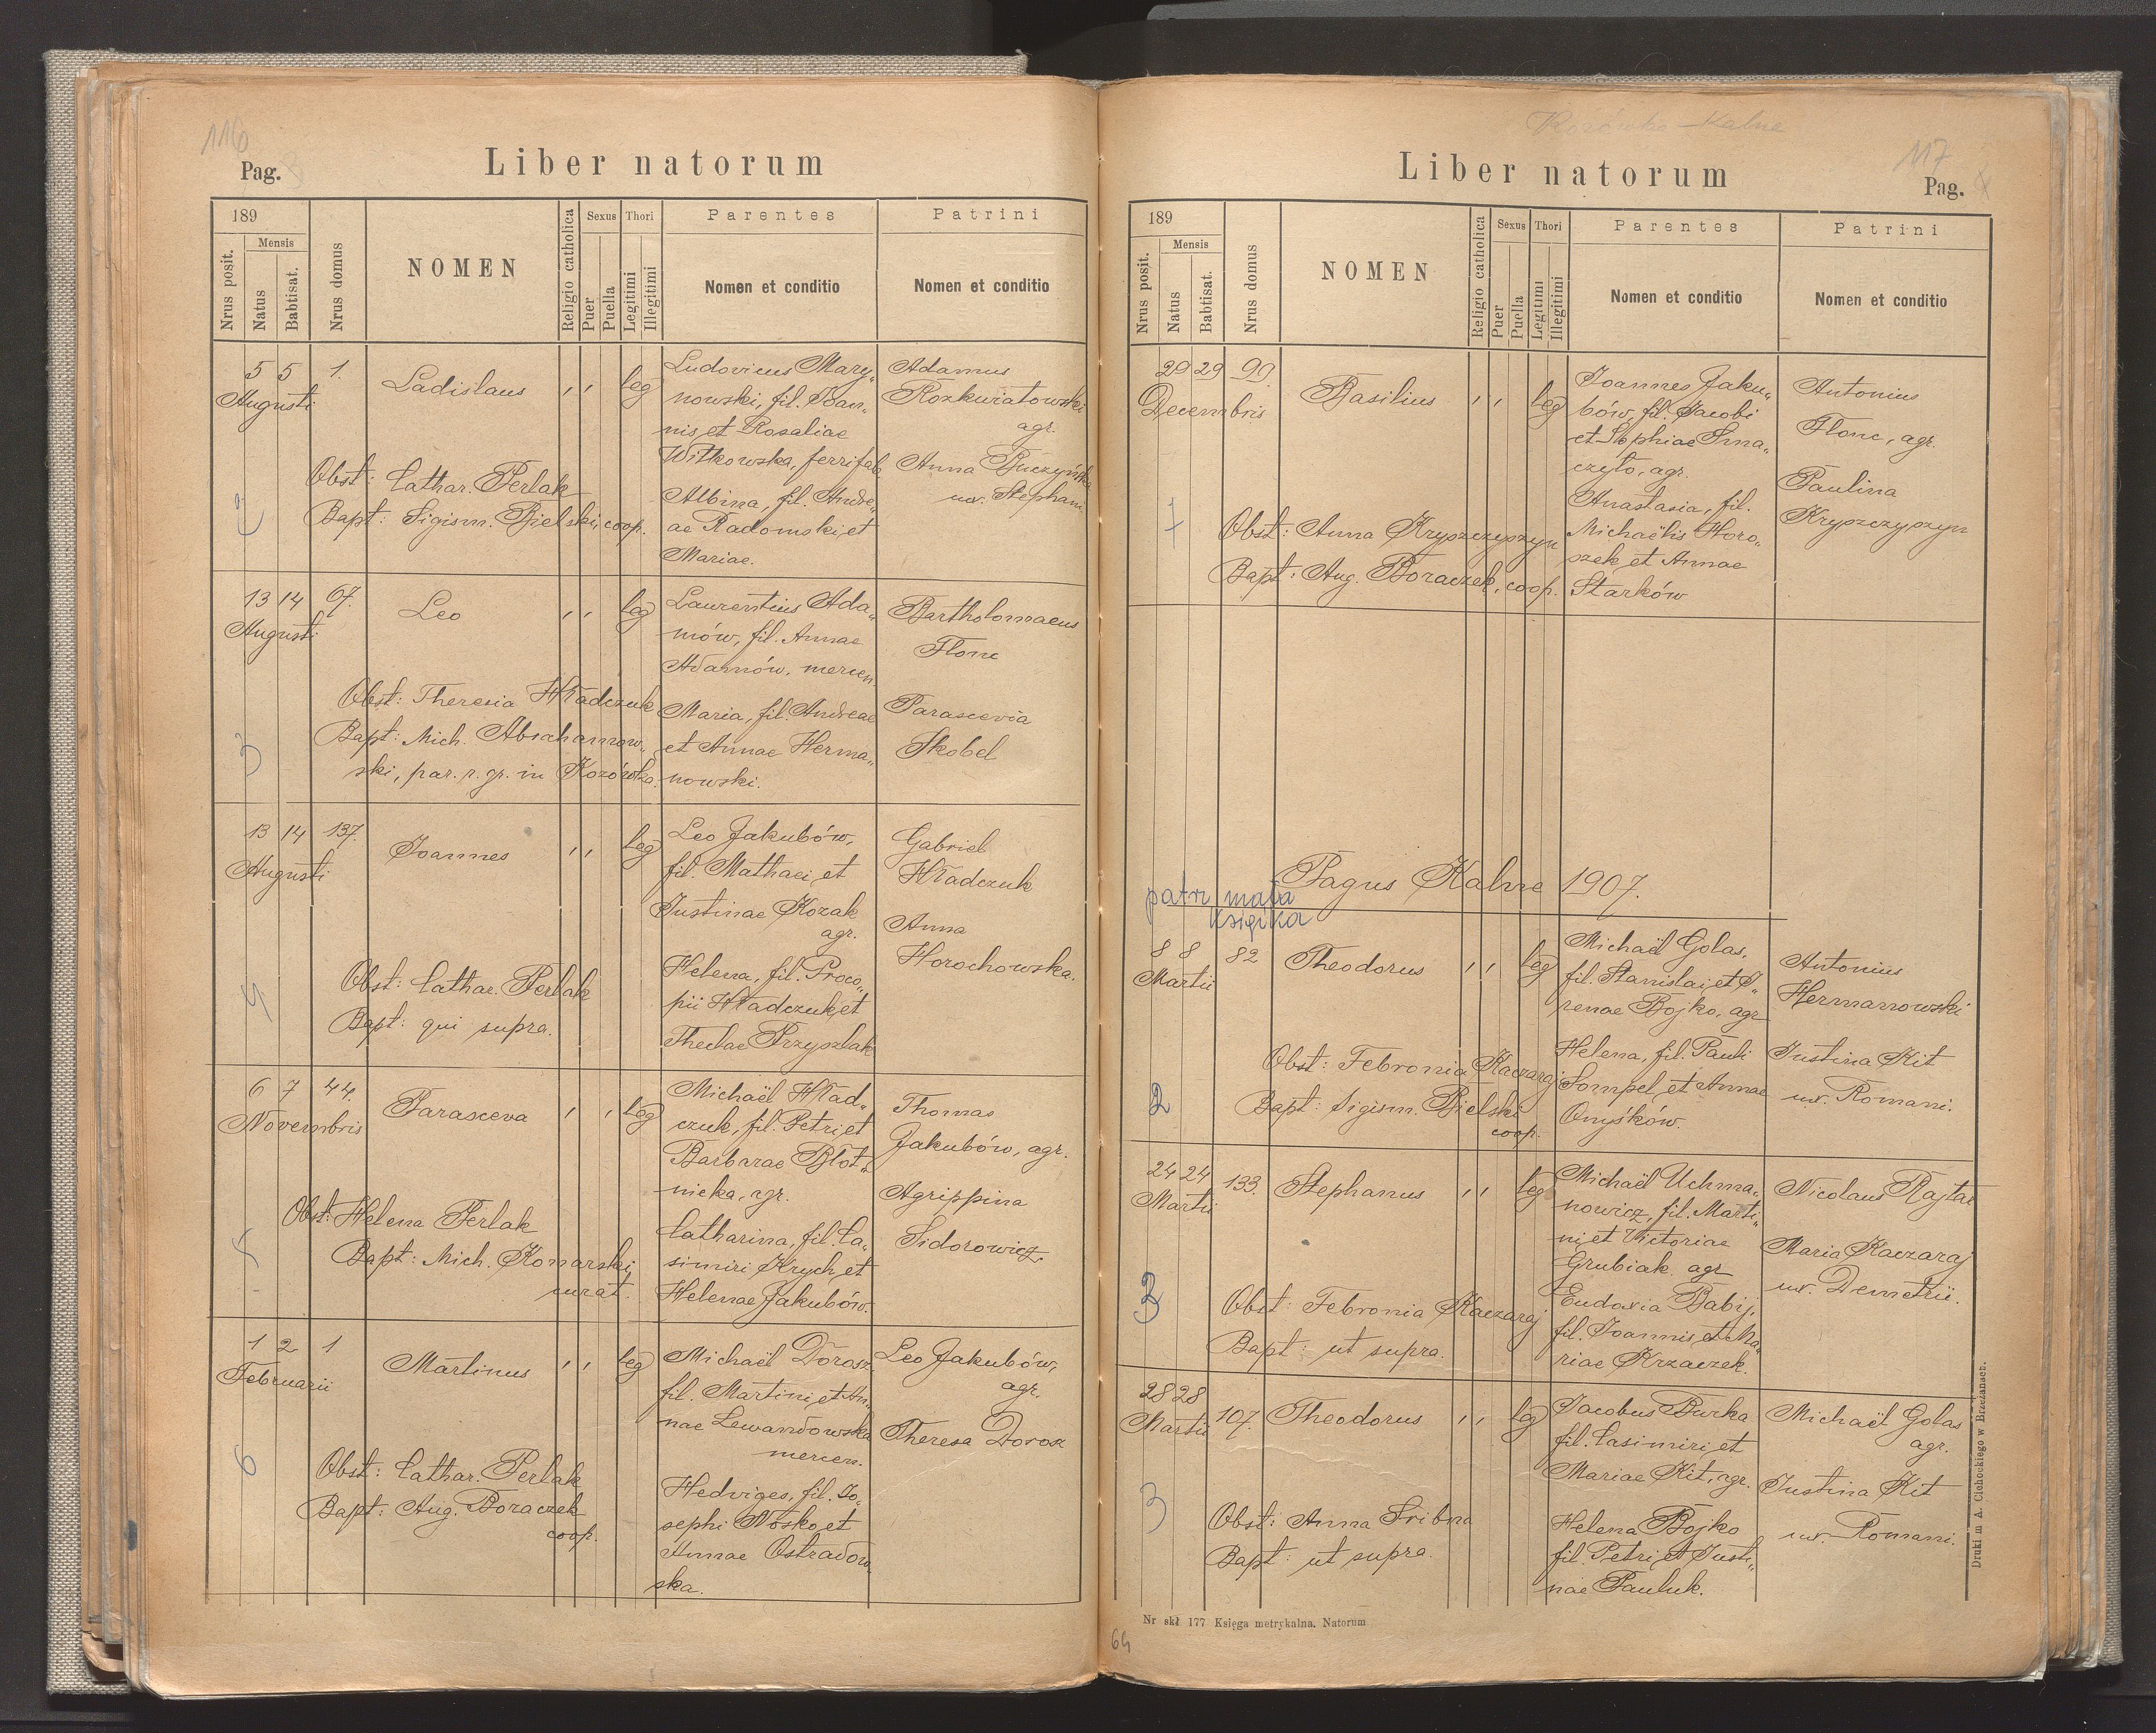 116
Pag.
Liber natorum
189
Nrus posit.
Mensis
Natus
Babtisat.
Nrus domus
NOMEN
Religio catholica
Sexus
Puer
Puella
Thori
Legitimi
Illegitimi
Parentes
Nomen et conditio
Patrini
Nomen et conditio
5 5 1.
Augusti
Ladislaus
leg
Ludovicus Mary„
nowski, fil. Joan„
nis et Rosaliae
Witkowska, ferrifab.
Albina, fil. Andre„
ae Radomski et
Mariae.
Adamus
Rozkwiatowski
agr.
Anna Buczyńska
ux. Stephani
Obst: Cathar. Perlak
Bapt: Sigism. Bielski, coop.
2
13 14 67.
Augusti
Leo
leg
Laurentius Ada„
mów, fil. Annae
Adamów, mercen.
Maria, fil. Andreae
et Annae Herma„
nowski.
Bartholomaeus
Flonc
Parascevia
Skobel
Obst: Theresia Hładczuk
Bapt: Mich. Abrahamow„
ski, par. r. gr. in Kozówka.
3
13 14 137.
Augusti
Joannes
leg
Leo Jakubów,
fil. Mathaei et
Justinae Kozak
agr.
Helena, fil. Proco„
pii Hładczuk et
Theclae Przyszlak
Gabriel
Hładczuk
Anna
Horochowska.
Obst: Cathar. Perlak
Bapt: qui supra.
4
6 7 44.
Novembris
Parasceva
leg
Michaël Hład„
czuk, fil. Petri et
Barbarae Błot„
nicka, agr.
Catharina, fil. Ca„
simiri Krych et
Helenae Jakubów.
Thomas
Jakubów, agr.
Agrippina
Sidorowicz.
Obst: Helena Perlak
Bapt: Mich. Konarski,
curat.
5
1 2 1
Februarii
Martinus
leg
Michaël Dorosz,
fil. Martini et An„
nae Lewandowska
mercen.
Hedviges, fil. Jo„
sephi Nosko et
Annae Ostradow„
ska.
Leo Jakubów,
agr.
Theresa Dorosz
Obst: Cathar. Perlak
Bapt: Aug. Boraczek
coop.
6
Kozówka - Kalne
117
Liber natorum
Pag.
189
Nrus posit.
Mensis
Natus
Babtisat.
Nrus domus
NOMEN
Religio catholica
Sexus
Puer
Puella
Thori
Legitimi
Illegitimi
Parentes
Nomen et conditio
Patrini
Nomen et conditio
29 29 99.
Decembris
Basilius
leg
Joannes Jaku„
bów, fil. Jacobi
et Sophiae Sma„
czyło, agr.
Anastasia, fil.
Michaëlis Horo„
szek et Annae
Starków
Antonius
Flonc, agr.
Paulina
Kryszczyszyn
Obst: Anna Kryszczyszyn
Bapt: Aug. Boraczek, coop.
7
Pagus Kalne 1907.
patrz mała
książka
8 8 82
Martii
Theodorus
leg
Michaël Golas,
fil. Stanislai et I„
renae Bojko, agr
Helena, fil. Pauli
Sompel et Annae
Onyśków.
Antonius
Hermanowski
Justina Kit
ux. Romani.
Obst: Febronia Kaczaraj
Bapt: Sigism. Bielski
coop.
2
24 24 133.
Martii
Stephanus
leg
Michaël Uchma„
nowicz, fil. Marti„
ni et Victoriae
Grubiak agr
Eudoxia Babij,
fil. Joannis et Ma„
riae Krzaczek.
Nicolaus Rajtar
Maria Kaczaraj
ux. Demetrii.
Obst: Febronia Kaczaraj
Bapt: ut supra.
28 28 107.
Martii
Theodorus
leg
Jacobus Burka
fil. Casimiri et
Mariae Kit, agr.
Helena Bojko
fil. Petri et Justi„
nae Pauluk.
Michaël Golas
agr.
Justina Kit
ux. Romani.
Obst: Anna Sribna
Bapt: ut supra.
3
Nr skł 177 Księga metrykalna. Natorum
Druki m A. Cichockiego w Brzeżanach.
64